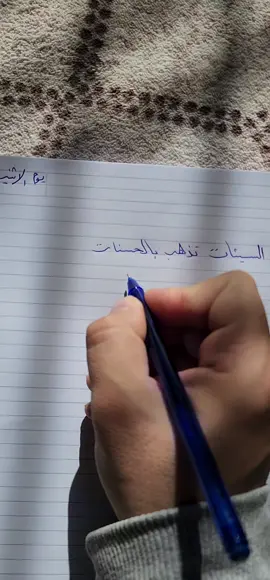 يوم الاثنين
السيئات تذهب بالحسنات